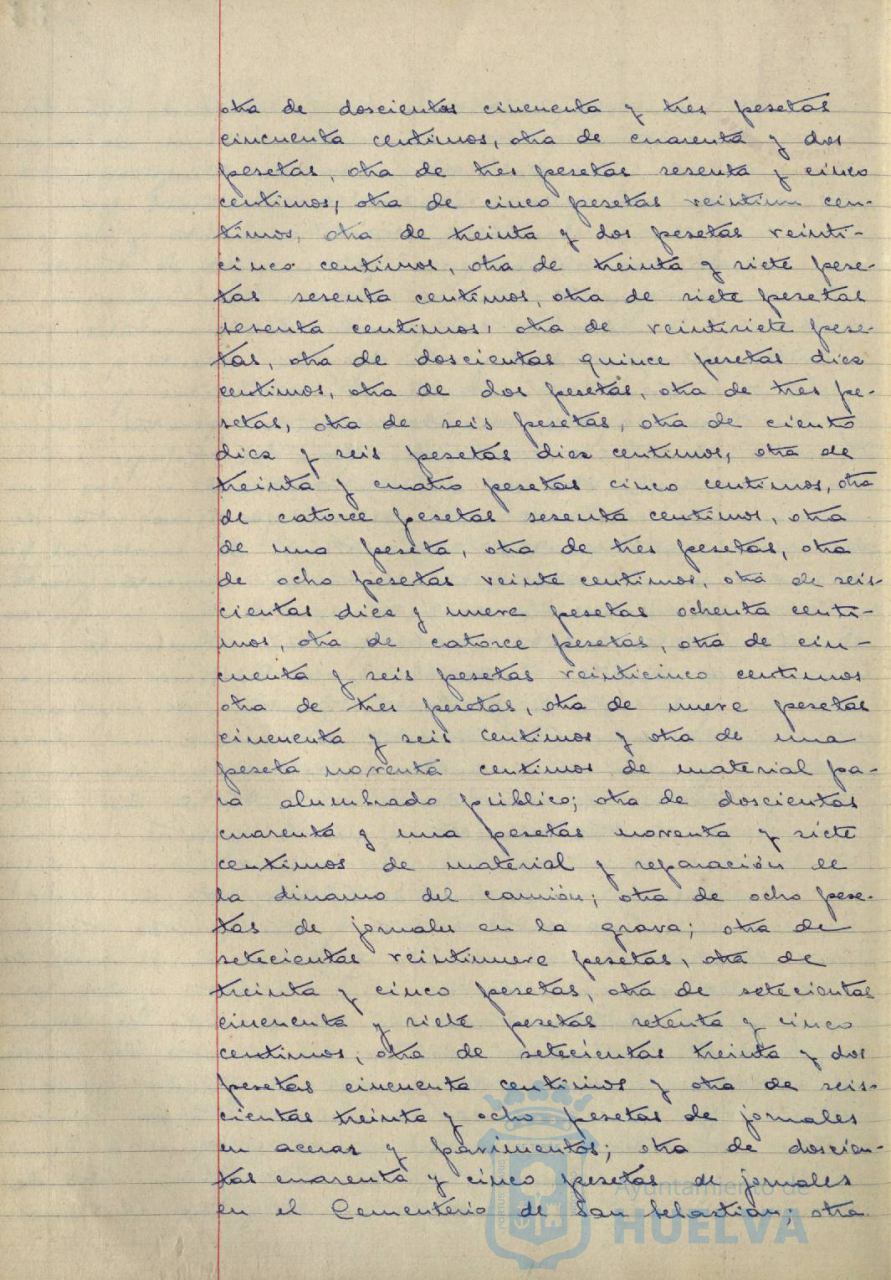 otra de doscientas cincuenta y tres pesetas
cincuenta centimos, otra de cuarenta y dos
pesetas, otra de tres pesetas sesenta y cinco
centimos, otra de cinco pesetas veintiun cen-
timos, otra de treinta y dos pesetas veinti-
cinco centimos, otra de treinta y siete pese-
tas sesenta centimos, otra de siete pesetas
sesenta centimos, otra de veintisiete pese-
tas, otra de doscientas quince pesetas diez
centimos, otra de dos pesetas, otra de tres pe-
setas, otra de seis pesetas, otra de ciento
diez y seis pesetas diez centimos, otra de
treinta y cuatro pesetas cinco centimos, otra
de catorce pesetas sesenta centimos, otra
de una peseta, otra de tres pesetas, otra
de ocho pesetas veinte centimos, otra de seis-
cientas diez y nueve pesetas ochenta centi-
mos, otra de catorce pesetas, otra de cin-
cuenta y seis pesetas veinticinco centimos
otra de tres pesetas, otra de nueve pesetas
cincuenta y seis centimos y otra de una
peseta noventa centimos de material pa-
ra alumbrado público; otra de doscientas
cuarenta y una pesetas noventa y siete
centimos de material y reparación de
la dinamo del camión; otra de ocho pese-
tas de jornales en la grava; otra de
setecientas veintinueve pesetas, otra de
treinta y cinco pesetas, otra de setecientas
cincuenta y siete pesetas setenta y cinco
centimos, otra de setecientas treinta y dos
pesetas cincuenta centimos y otra de seis-
cientas treinta y ocho pesetas de jornales
en aceras y pavimentos; otra de doscien-
tas cuarenta y cinco pesetas de jornales
en el Cementerio de San Sebastian; otra
Ayuntamiento de
HUELVA